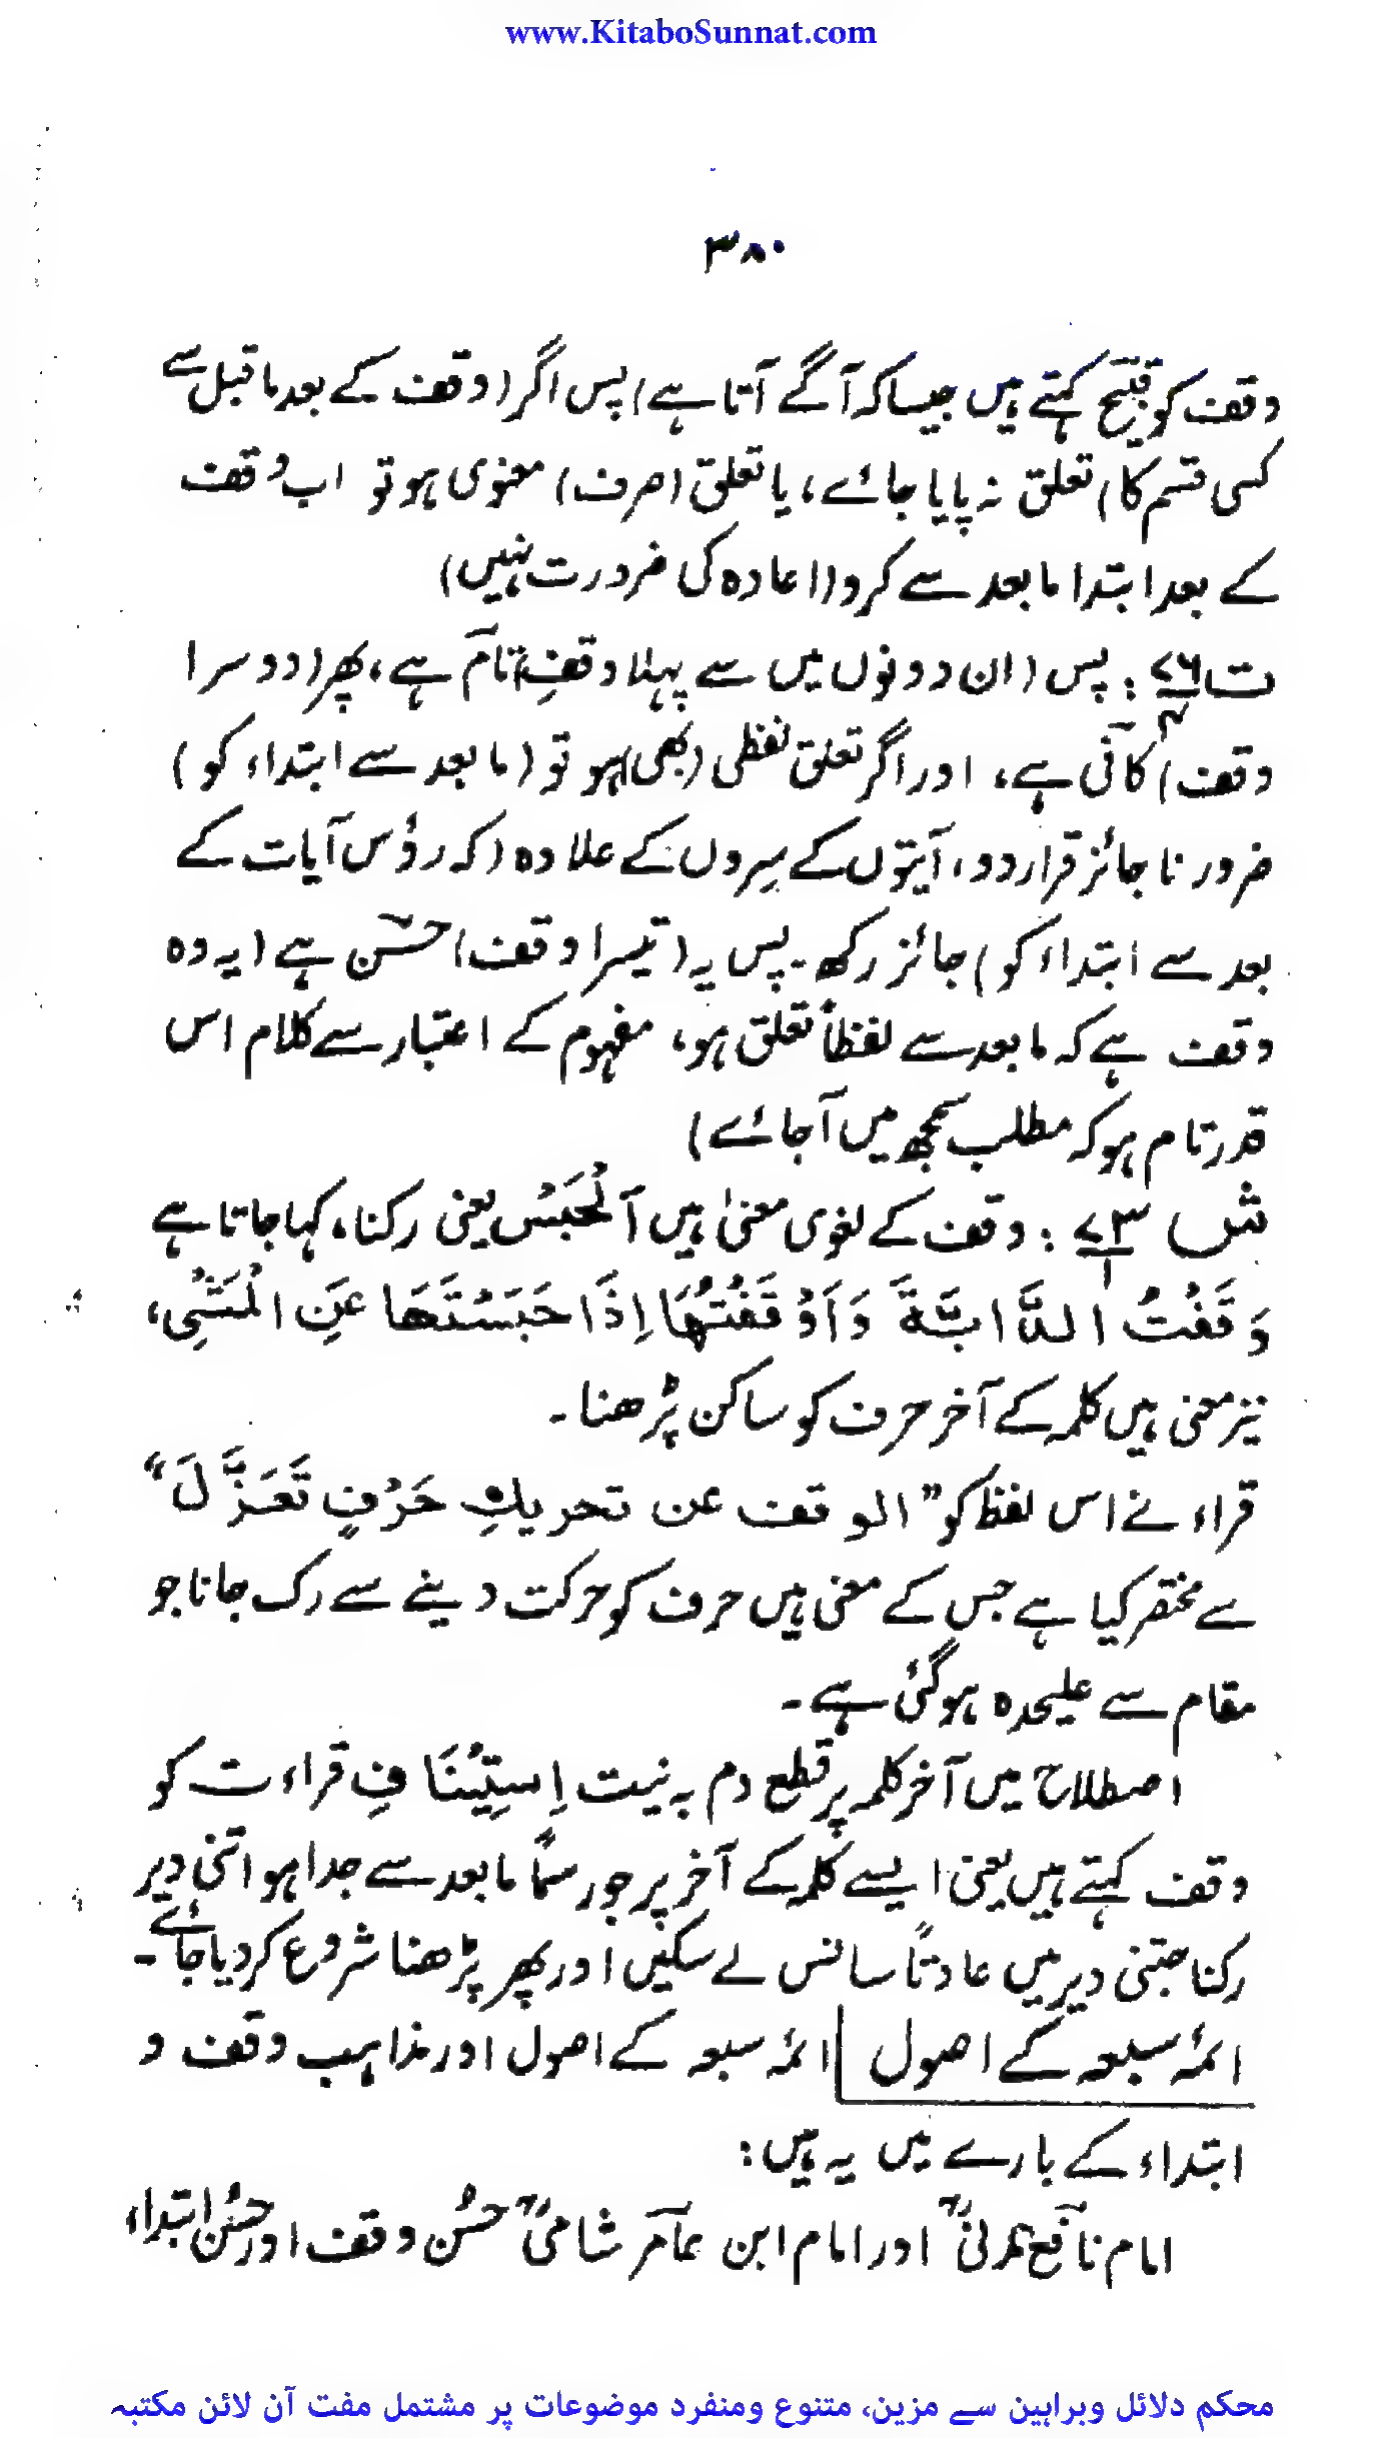 www.KitaboSunnat.com
۳۸۰
وقف کو قبیح کہتے ہیں جیسا کہ آگے آتا ہے) پس اگر (وقف کے بعد ماقبل سے
کسی قسم کا) تعلق نہ پایا جائے، یا تعلق (صرف) معنوی ہو تو اب وقف
کے بعد ابتدا مابعد سے کرو (اعادہ کی ضرورت نہیں)
ت ۷۶: پس (ان دونوں میں سے پہلا وقف) تام ہے، پھر (دوسرا
وقف) کافی ہے، اور اگر تعلق لفظی (بھی) ہو تو (مابعد سے ابتداء کو)
ضرور ناجائز قرار دو، آیتوں کے سِروں کے علاوہ (کہ رؤس آیات کے
بعد سے ابتداء کو) جائز رکھ۔ پس یہ (تیسرا وقف) حسن ہے (یہ وہ
وقف ہے کہ مابعد سے لفظاً تعلق ہو، مفہوم کے اعتبار سے کلام اس
قدر تام ہو کہ مطلب سمجھ میں آجائے)
ش ۷۳/۱: وقف کے لغوی معنیٰ ہیں اَلْحَبَسْ یعنی رکنا، کہا جاتا ہے
وَقَفْتُ الدَّابَّةَ وَاَوْقَفْتُهَا اِذَا حَبَسْتَهَا عَنِ الْمَشْيِ،
نیز معنی ہیں کلمہ کے آخر حرف کو ساکن پڑھنا۔
قراء نے اس لفظ کو ”الوقف عن تحریكِ حَرْفٍ تَعَزَّلَ“
سے مختصر کیا ہے جس کے معنی ہیں حرف کو حرکت دینے سے رک جانا جو
مقام سے علیحدہ ہوگئی ہے۔
اصطلاح میں آخر کلمہ پر قطع دم بہ نیت اِسْتِیْنَافِ قراءت کو
وقف کہتے ہیں یعنی ایسے کلمہ کے آخر پر جو رسماً مابعد سے جدا ہو اتنی دیر
رکنا جتنی دیر میں عادتاً سانس لے سکیں اور پھر پڑھنا شروع کردیا جائے۔
ائمۂ سبعہ کے اصول ائمہ سبعہ کے اصول اور مذاہب وقف و
ابتداء کے بارے میں یہ ہیں:
امام نافع مدنیؒ اور امام ابن عامر شامیؒ حسُن وقف اور حسُن ابتداء
محکم دلائل وبراہین سے مزین، متنوع ومنفرد موضوعات پر مشتمل مفت آن لائن مکتبہ